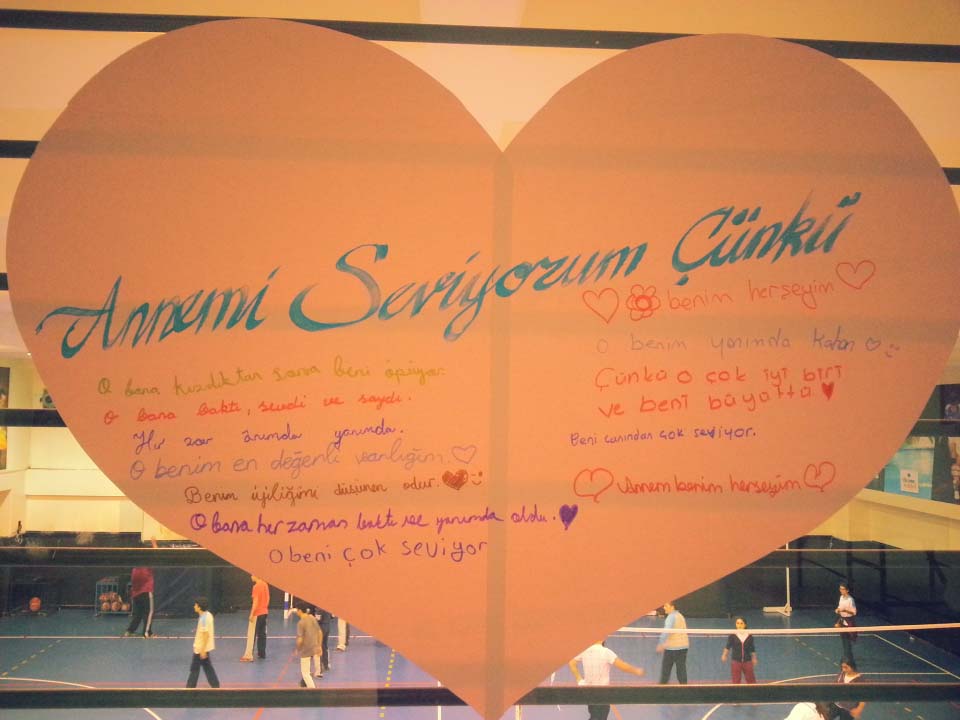 Annemi Seviyorum Çünkü
O bana kızdıktan sonra beni öpüyor.
O bana baktı, sevdi ve saydı.
Her zor ânımda yanımda.
O benim en değerli varlığım
Benim iyiliğimi düşünen odur.
O bana her zaman baktı ve yanımda oldu.
O beni çok seviyor
benim herşeyim
O benim yanımda kalan
Çünkü o çok iyi biri
ve beni büyüttü
Beni canından çok seviyor.
Annem benim herşeyim